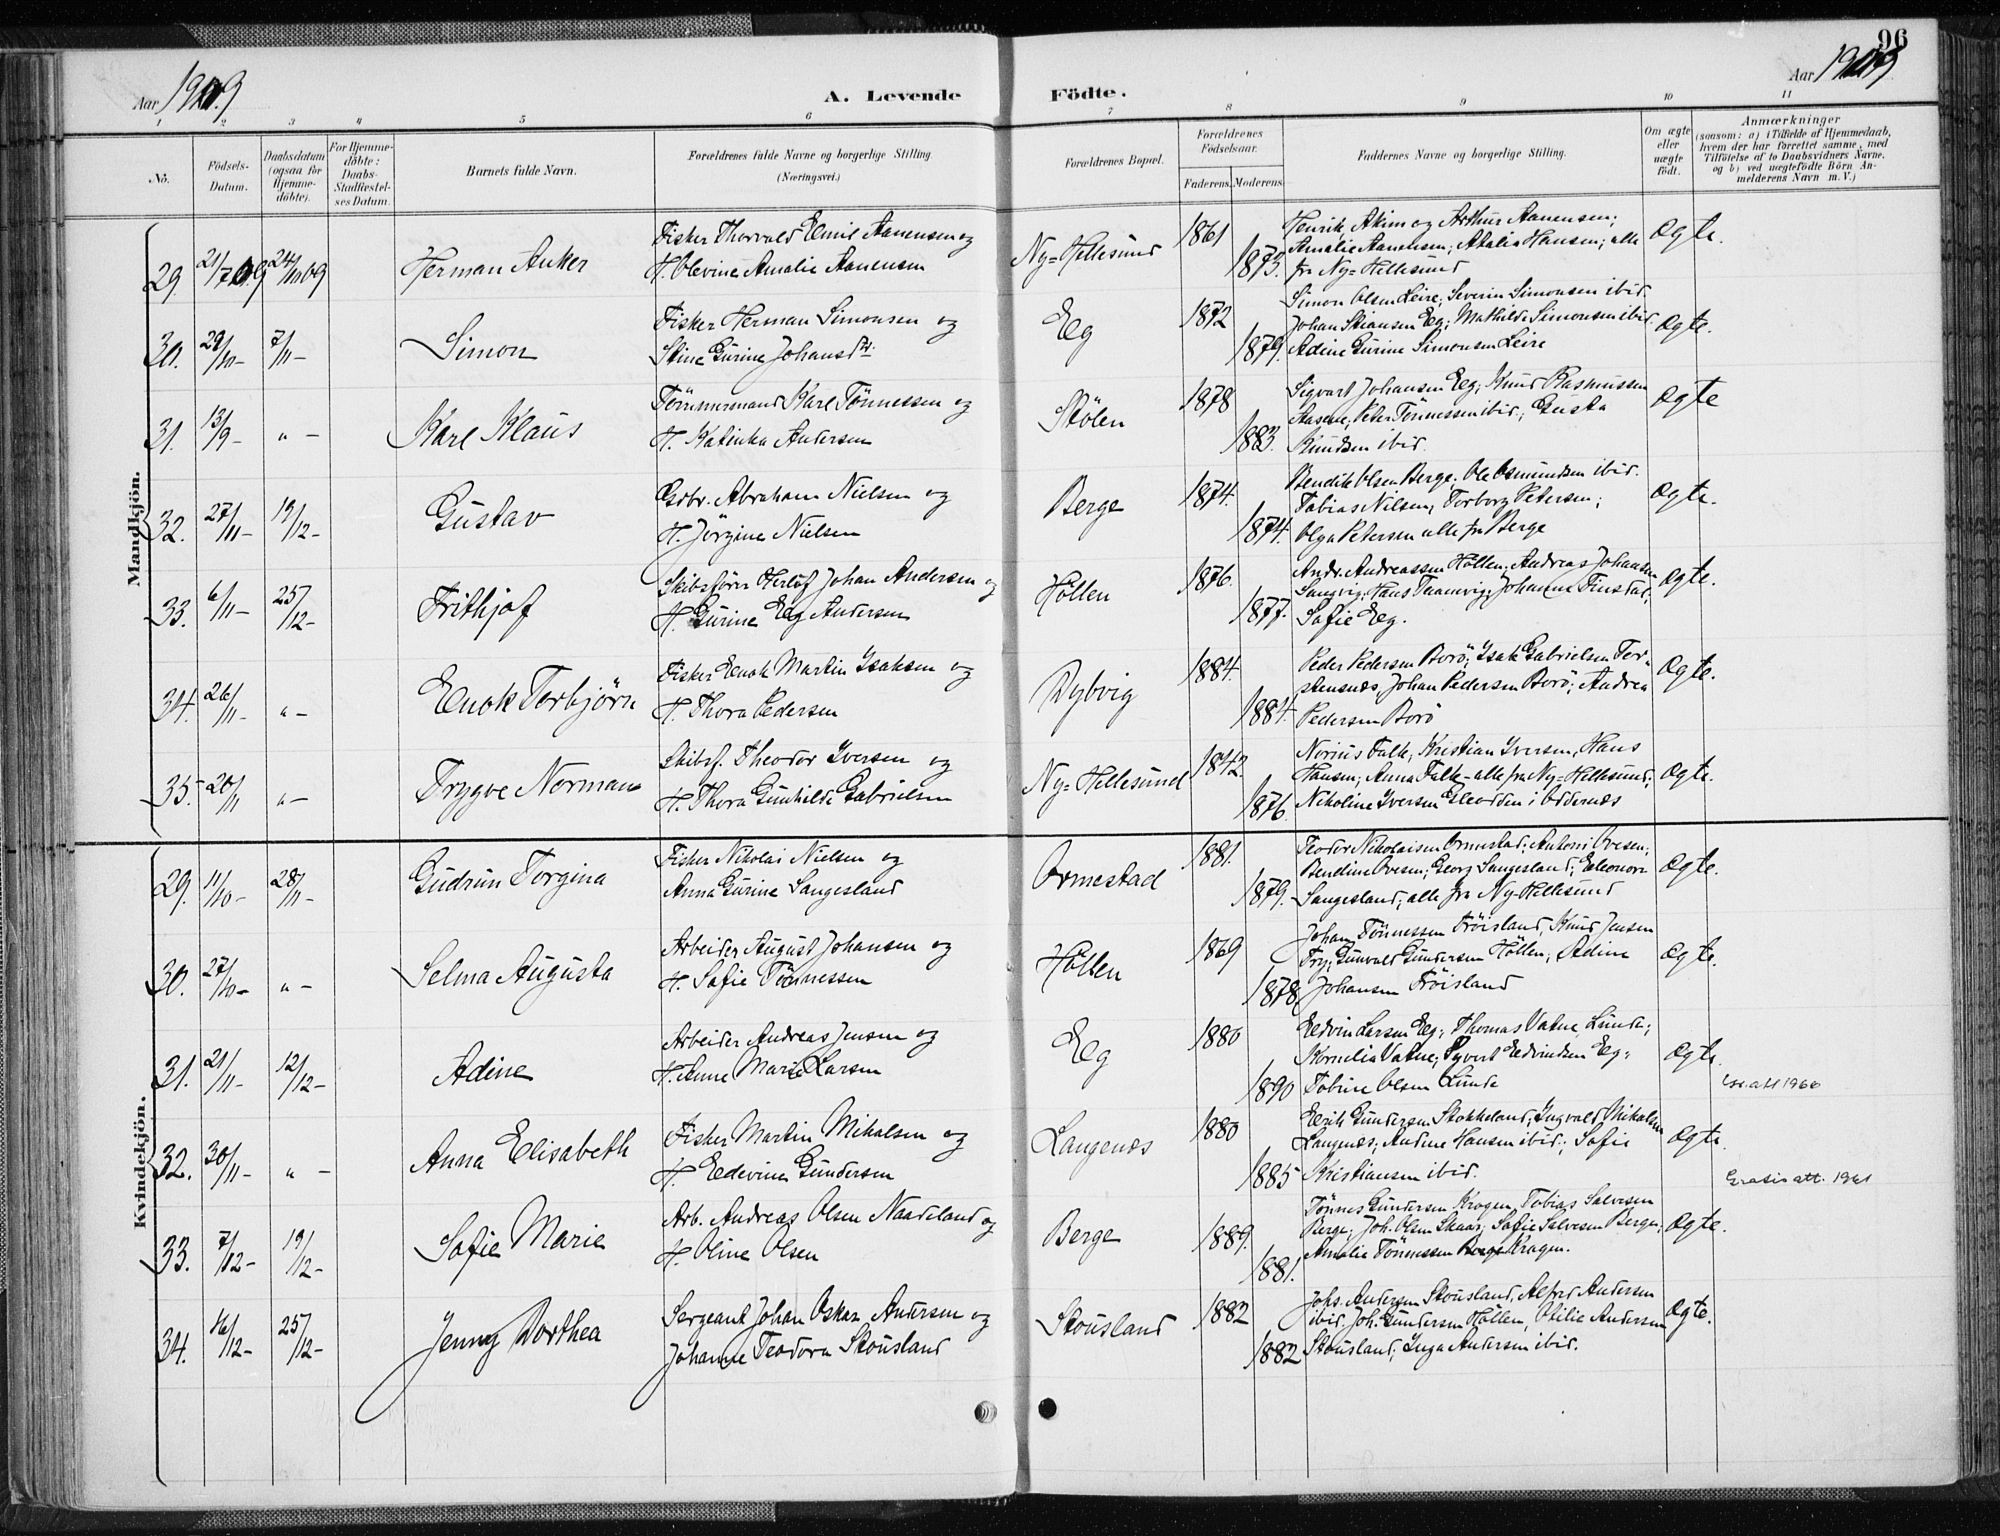 96
Aar 1909
A. Levende Födte.
Aar 1909
1 2 3 4 5 6 7 8 9 10 11
Nö.
Födsels-Datum.
Daabsdatum (ogsaa for Hjemmedöbte).
For Hjemmedöbte: Daabs-Stadfæstelses Datum.
Barnets fulde Navn.
Forældrenes fulde Navne og borgerlige Stilling. (Næringsvei.)
Forældrenes Bopæl.
Forældrenes Födselsaar.
Faderens. Moderens.
Faddernes Navne og borgerlige Stilling.
Om ægte eller uægte födt.
Anmærkninger
(saasom: a) i Tilfælde af Hjemmedaab, hvem der har forrettet samme, med Tilföielse af to Daabsvidners Navne. og b) ved uægtefödte Börn Anmelderens Navn m. V.)
Mandkjön.
29. 21/7 09 24/10 09 Herman Anker
Fisker Thorvald Emil Aanensen og
H. Olevine Amalie Aanensen
Ny=Hellesund 1861 1873.
Henrik, Akim og Arthur Aanensen;
Amalie Aanensen; Atalia Hansen; alle
fra Ny=Hellesund
Ægte.
30. 29/10- 7/11- Simon
Fisker Herman Simonsen og
Stine Gurine Johansdt.
Eg 1872 1879.
Simon Olsen Leire; Severin Simonsen ibid.
Johan Stiansen Eg; Mathilde Simonsen ibid
Adine Gurine Simonsen Leire
Ægte.
31. 13/9- " - Karl Klaus
Tömmermand Karl Tönnessen og
H. Katinka Andersen
Stölen 1878 1883.
Sigvart Johansen Eg; Knud Rasmussen
Aasene; Peter Tönnessen ibid; Gusta
Knudsen ibid.
Ægte
32. 27/11- 19/12- Gustav
Gdbr. Abraham Nielsen og
H. Jörgine Nielsen
Berge 1874. 1874.
Bendik Olsen Berge; Ole Osmundsen ibid.
Tobias Nilsen, Torborg Petersen;
Olga Petersen alle fra Berge
Ægte.
33. 6/11- 25/12- Frithjof
Skibsförer Herlof Johan Andersen og
H. Gurine Eg Andersen
Höllen 1876. 1877.
Andr. Andreassen Höllen; Andreas Johansen
Langvig; Hans Taamvig; Johanne Finstad,
Sofie Eg.
Ægte.
34. 26/11- " - Enok Torbjörn
Fisker Enok Martin Isaksen og
H. Thora Pedersen
Dybvig 1884. 1884.
Peder Pedersen Borö; Isak Gabrielsen Tor-
stensnæs, Johan Pedersen Borö; Andrea
Pedersen Borö
Ægte.
35. 20/11 " - Trygve Norman
Skibsf. Theodor Iversen og
H. Thora Gunhilde Gabrielsen
Ny=Hellesund 1842. 1876.
Norius Falk; Kristian Iversen, Hans
Hansen; Anna Falk - alle fra Ny-Hellesund;
Nikoline Iversen i Oddernæs
Ægte.
Kvindekjön.
29. 11/10- 28/11- Gudrun Torgina
Fisker Nikolai Nielsen og
Anna Gurine Sangesland
Ormestad 1881. 1879.
Teodor Nikolaisen Ormestad; Antoni Ovesen;
Bendine Ovesen; Georg Sangesland; Eleonore
Sangesland; alle fra Ny-Hellesund
Ægte.
30. 27/10- " - Selma Augusta
Arbeider August Johansen og
H. Sofie Tönnessen
Höllen 1869 1878.
Johan Tönnessen Fröisland, Knud Jensen
Try; Gunvald Gundersen Höllen; Adine
Johansen Fröisland
Ægte.
31. 21/11- 12/12- Adine
Arbeider Andreas Jensen og
H. Anne Marie Larsen
Eg 1880 1890
Edvin Larsen Eg; Thomas Vatne, Lunde;
Kornelia Vatne; Syvert Edvindsen Eg;
Tobine Olsen Lunde
Ægte.
att 1966
32. 30/11- " - Anna Elisabeth
Fisker Martin Mikalsen og
H. Edevine Gundersen
Langenæs 1880 1885
Erik Gundersen Stokkeland; Ingvald Mikalsen
Langenæs; Andine Hansen ibid; Sofie
Kristiansen ibid.
Ægte.
Gratis att. 1961
33. 7/12- 19/12- Sofie Marie
Arb. Andreas Olsen Naadeland og
H. Oline Olsen
Berge 1889. 1881.
Tönnes Gundersen Kragen, Tobias Salvesen
Berge; Joh. Olsen Skaar; Sofie Salvesen Berge;
Amalie Tönnessen Kragen.
Ægte.
34. 16/12- 25/12- Jenny Dorthea
Sergeant Johan Oskar Andersen og
Johanne Teodora Skousland
Skousland 1882 1882
Johs. Andersen Skousland, Alfred Andersen
ibid. Joh. Gundersen Höllen, Otilie Andersen
Skousland; Inga Andersen ibid.
Ægte.